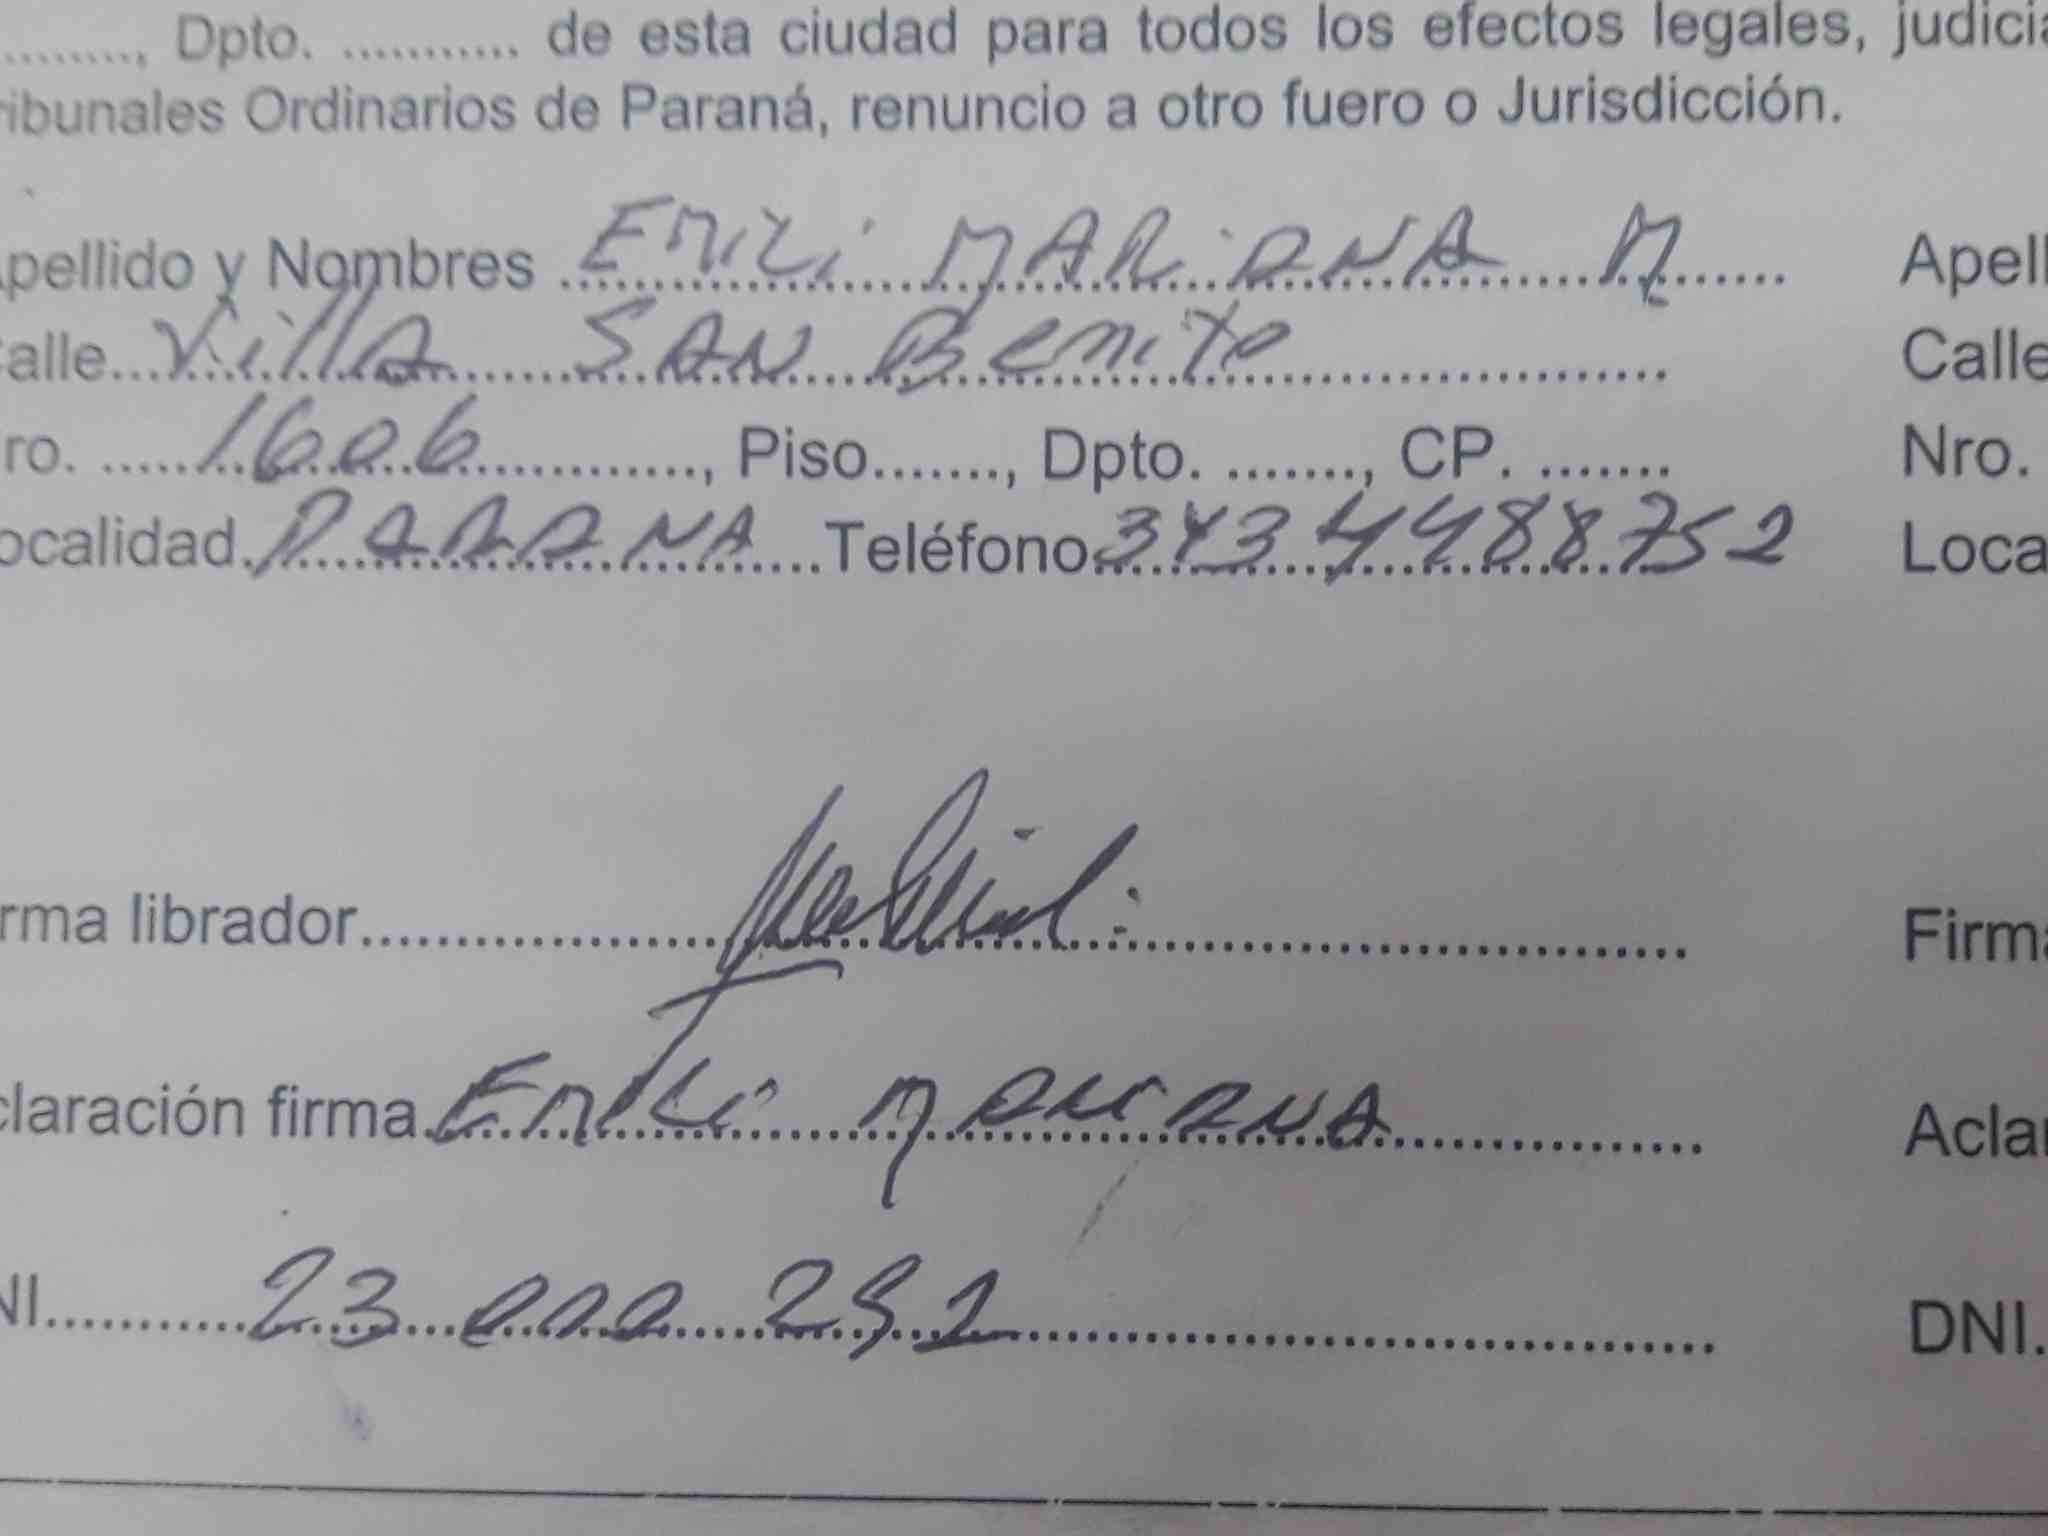 ........, Dpto. ........... de esta ciudad para todos los efectos legales, judicia
ribunales Ordinarios de Paraná, renuncio a otro fuero o Jurisdicción.
Apellido y Nombres EMILI MARIANA M Apell
Calle Villa SAN Benito Calle
ro. 1606, Piso......., Dpto. ........, CP. ....... Nro.
ocalidad PARANA Teléfono 343 4488752 Loca
rma librador Firma
claración firma EMILI MARIANA Aclar
NI 23 000 292 DNI.